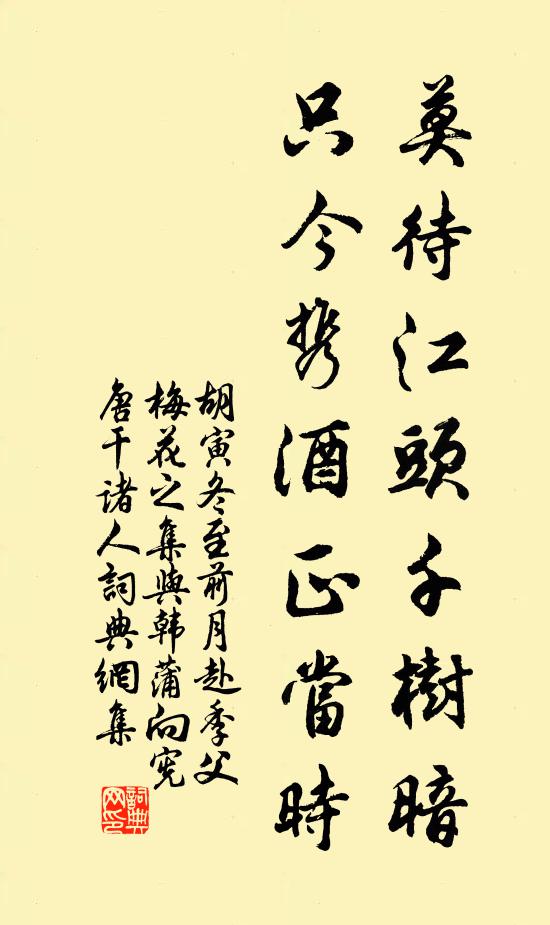 莫待江頭千樹暗
只今携酒正當時
胡寅冬至前月赴季父
梅花之集與韩蒲向宪
唐干诸人詞典網集
詞典网印